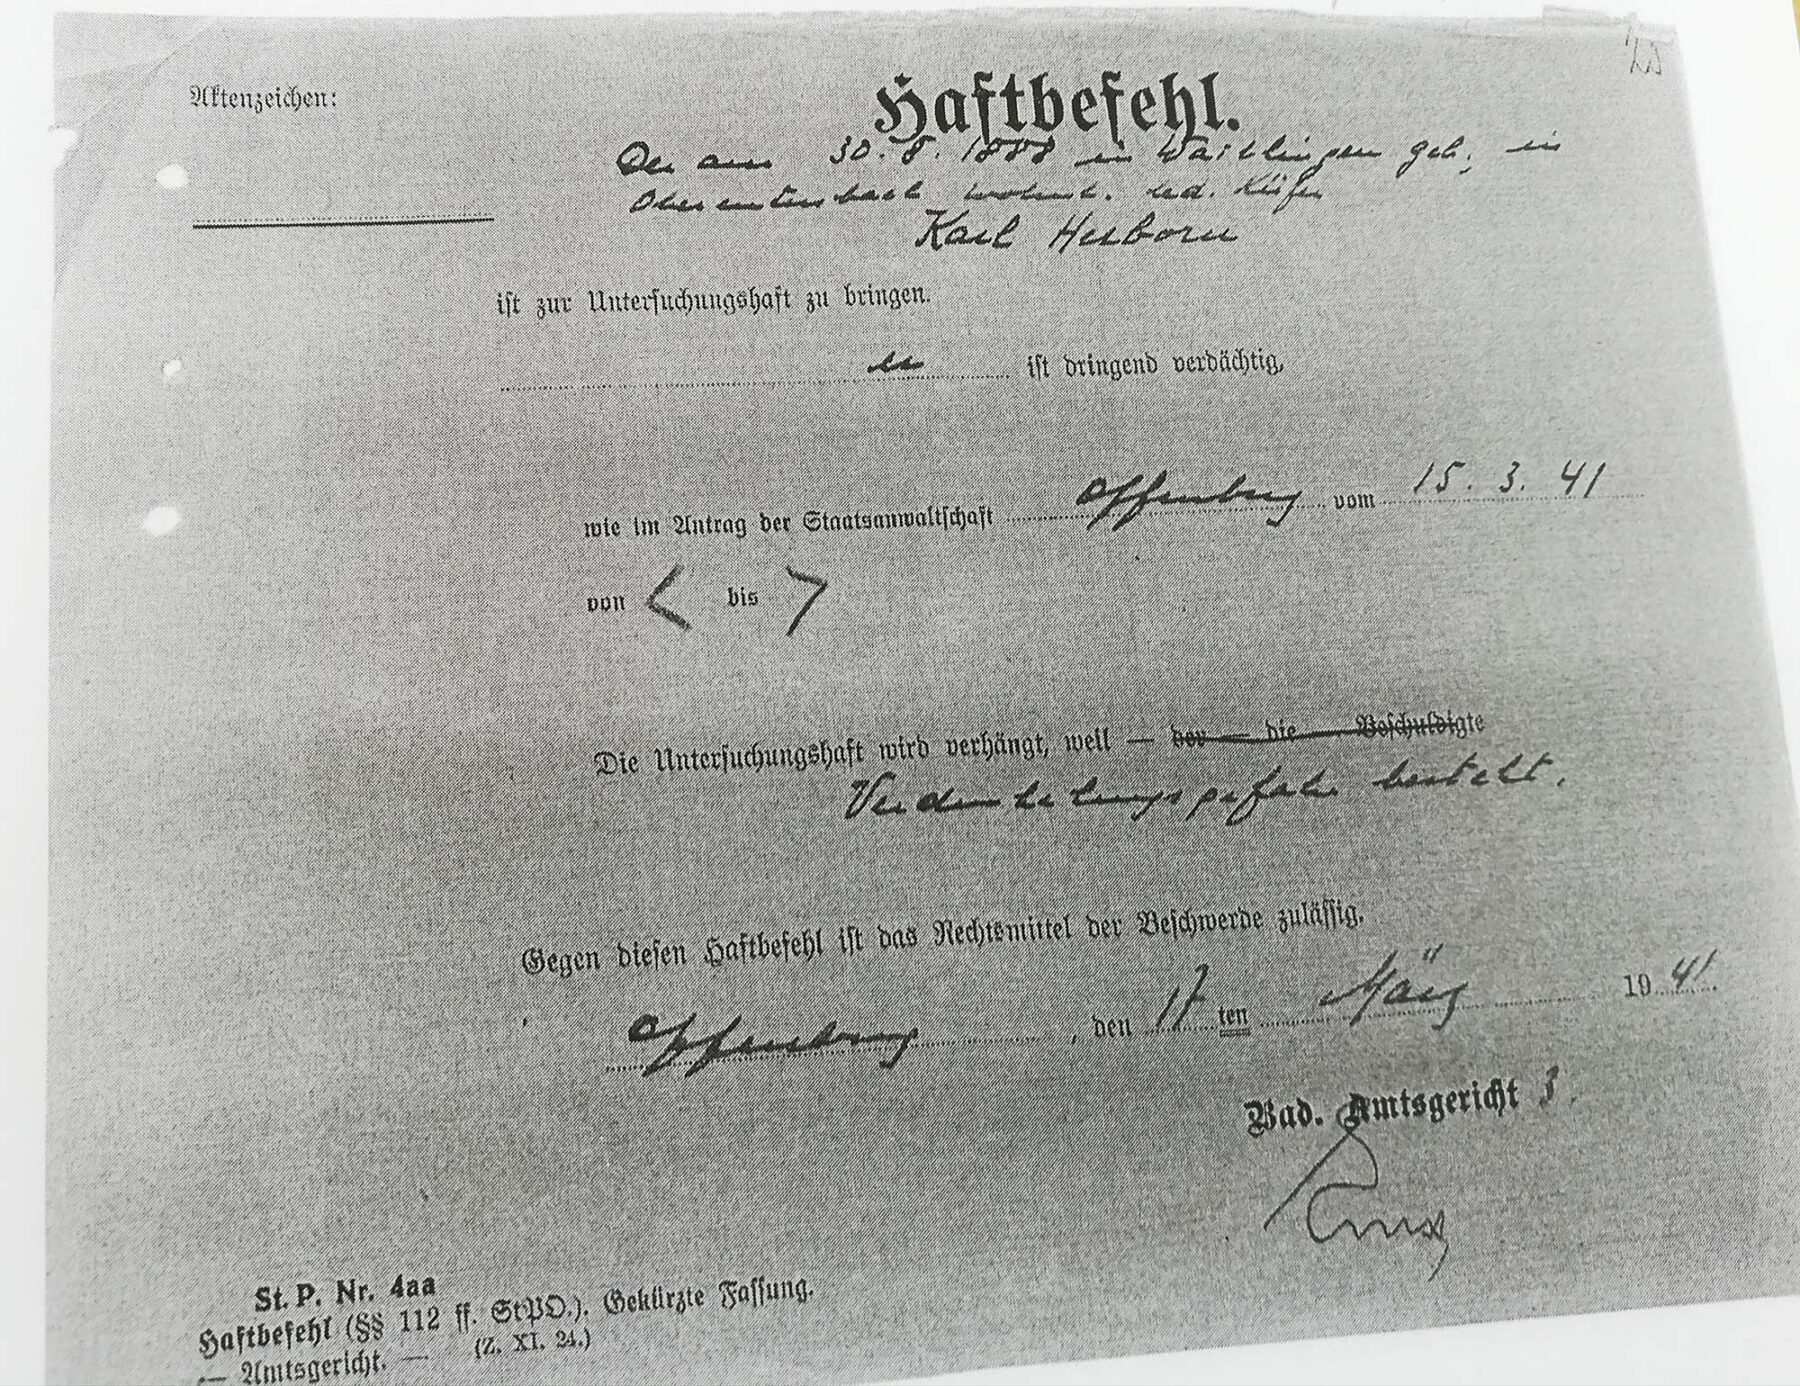 Aktenzeichen:
Haftbefehl.
Der am 30. 8. 1888 in Waiblingen geb., in
wohnh. led. Küfer
Karl Herborn
ist zur Untersuchungshaft zu bringen.
er ist dringend verdächtig,
wie im Antrag der Staatsanwaltschaft Offenburg vom 15. 3. 41
von < bis >
Die Untersuchungshaft wird verhängt, weil — der — die — Beschuldigte
Verdunkelungsgefahr besteht.
Gegen diesen Haftbefehl ist das Rechtsmittel der Beschwerde zulässig.
Offenburg, den 17ten März 1941
Bad. Amtsgericht 3.
St. P. Nr. 4aa
Haftbefehl (§§ 112 ff. StPO.). Gekürzte Fassung.
— Amtsgericht. — (Z. XI. 24.)